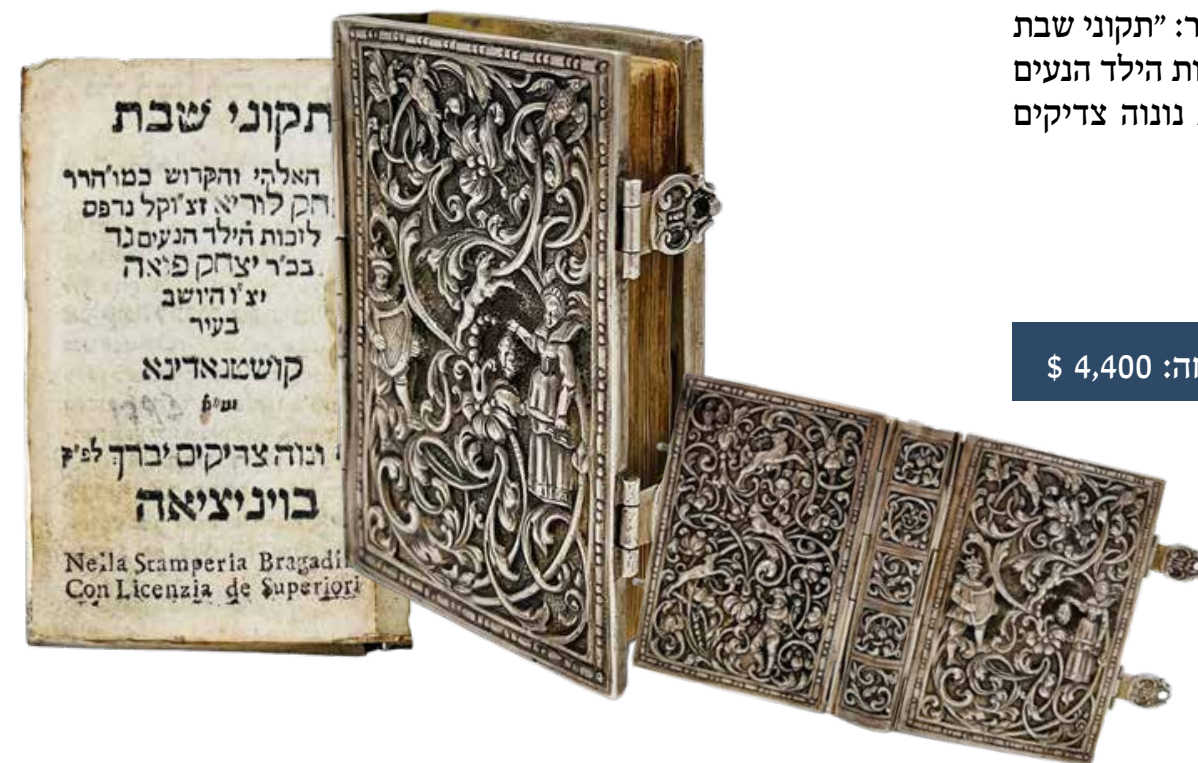 ר: "תקוני שבת
ות הילד הנעים
נונוה צדיקים
זה: 4,400 $
תקוני שבת
האלהי והקדוש כמו'הרר
חק לוריא זצ'וקל נדפס
לזכות הילד הנעים גד
בכ'ר יצחק פואה
יצ'ו היושב
בעיר
קושטנאדינא
ונוה צדיקים יברך לפ'ק
בויניציאה
Nella Stamperia Bragadi
Con Licenzia de Superiori